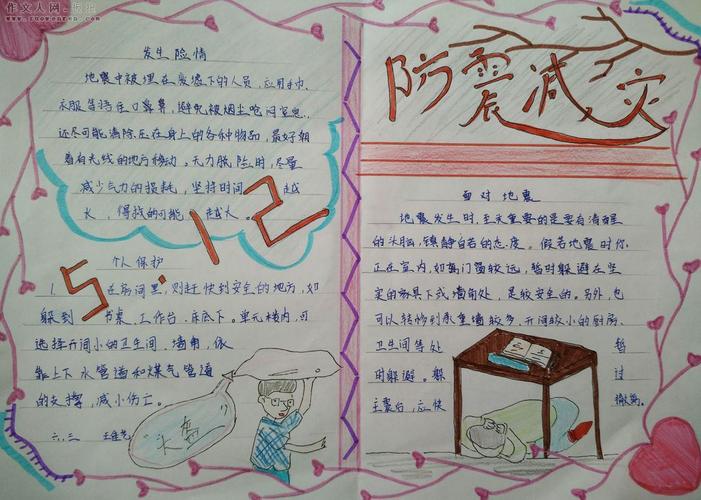 作文人网
www.zuowenren.com
发生险情
地震中被埋在废墟下的人员,应用手巾、
衣服等捂住口鼻,避免被烟尘呛闷窒息,
还尽可能清除压在身上的各种物品,最好朝
着有光线的地方移动。无力脱险用,尽量
减少气力的损耗,坚持时间 越
长,得救的可能 越大。
5.12
个人保护
1. 在房间里,则赶快到安全的地方,如
躲到 书桌、工作台、床底下。单元楼内,可
选择开间小的卫生间、墙角,依
靠上下水管道和煤气管道
的支撑,减小伤亡。
六、三
"头盔"
防震减灾
面对地震
地震发生时,至关重要的是要有清醒
的头脑,镇静自若的态度。假若地震时你
正在室内,如离门窗较远,暂时躲避在坚
实的家具下或墙角处,是较安全的。另外,也
可以转移到承重墙较多、开间较小的厨房、
卫生间等处 暂
时躲避。躲 过
主震后,应快 撤离。